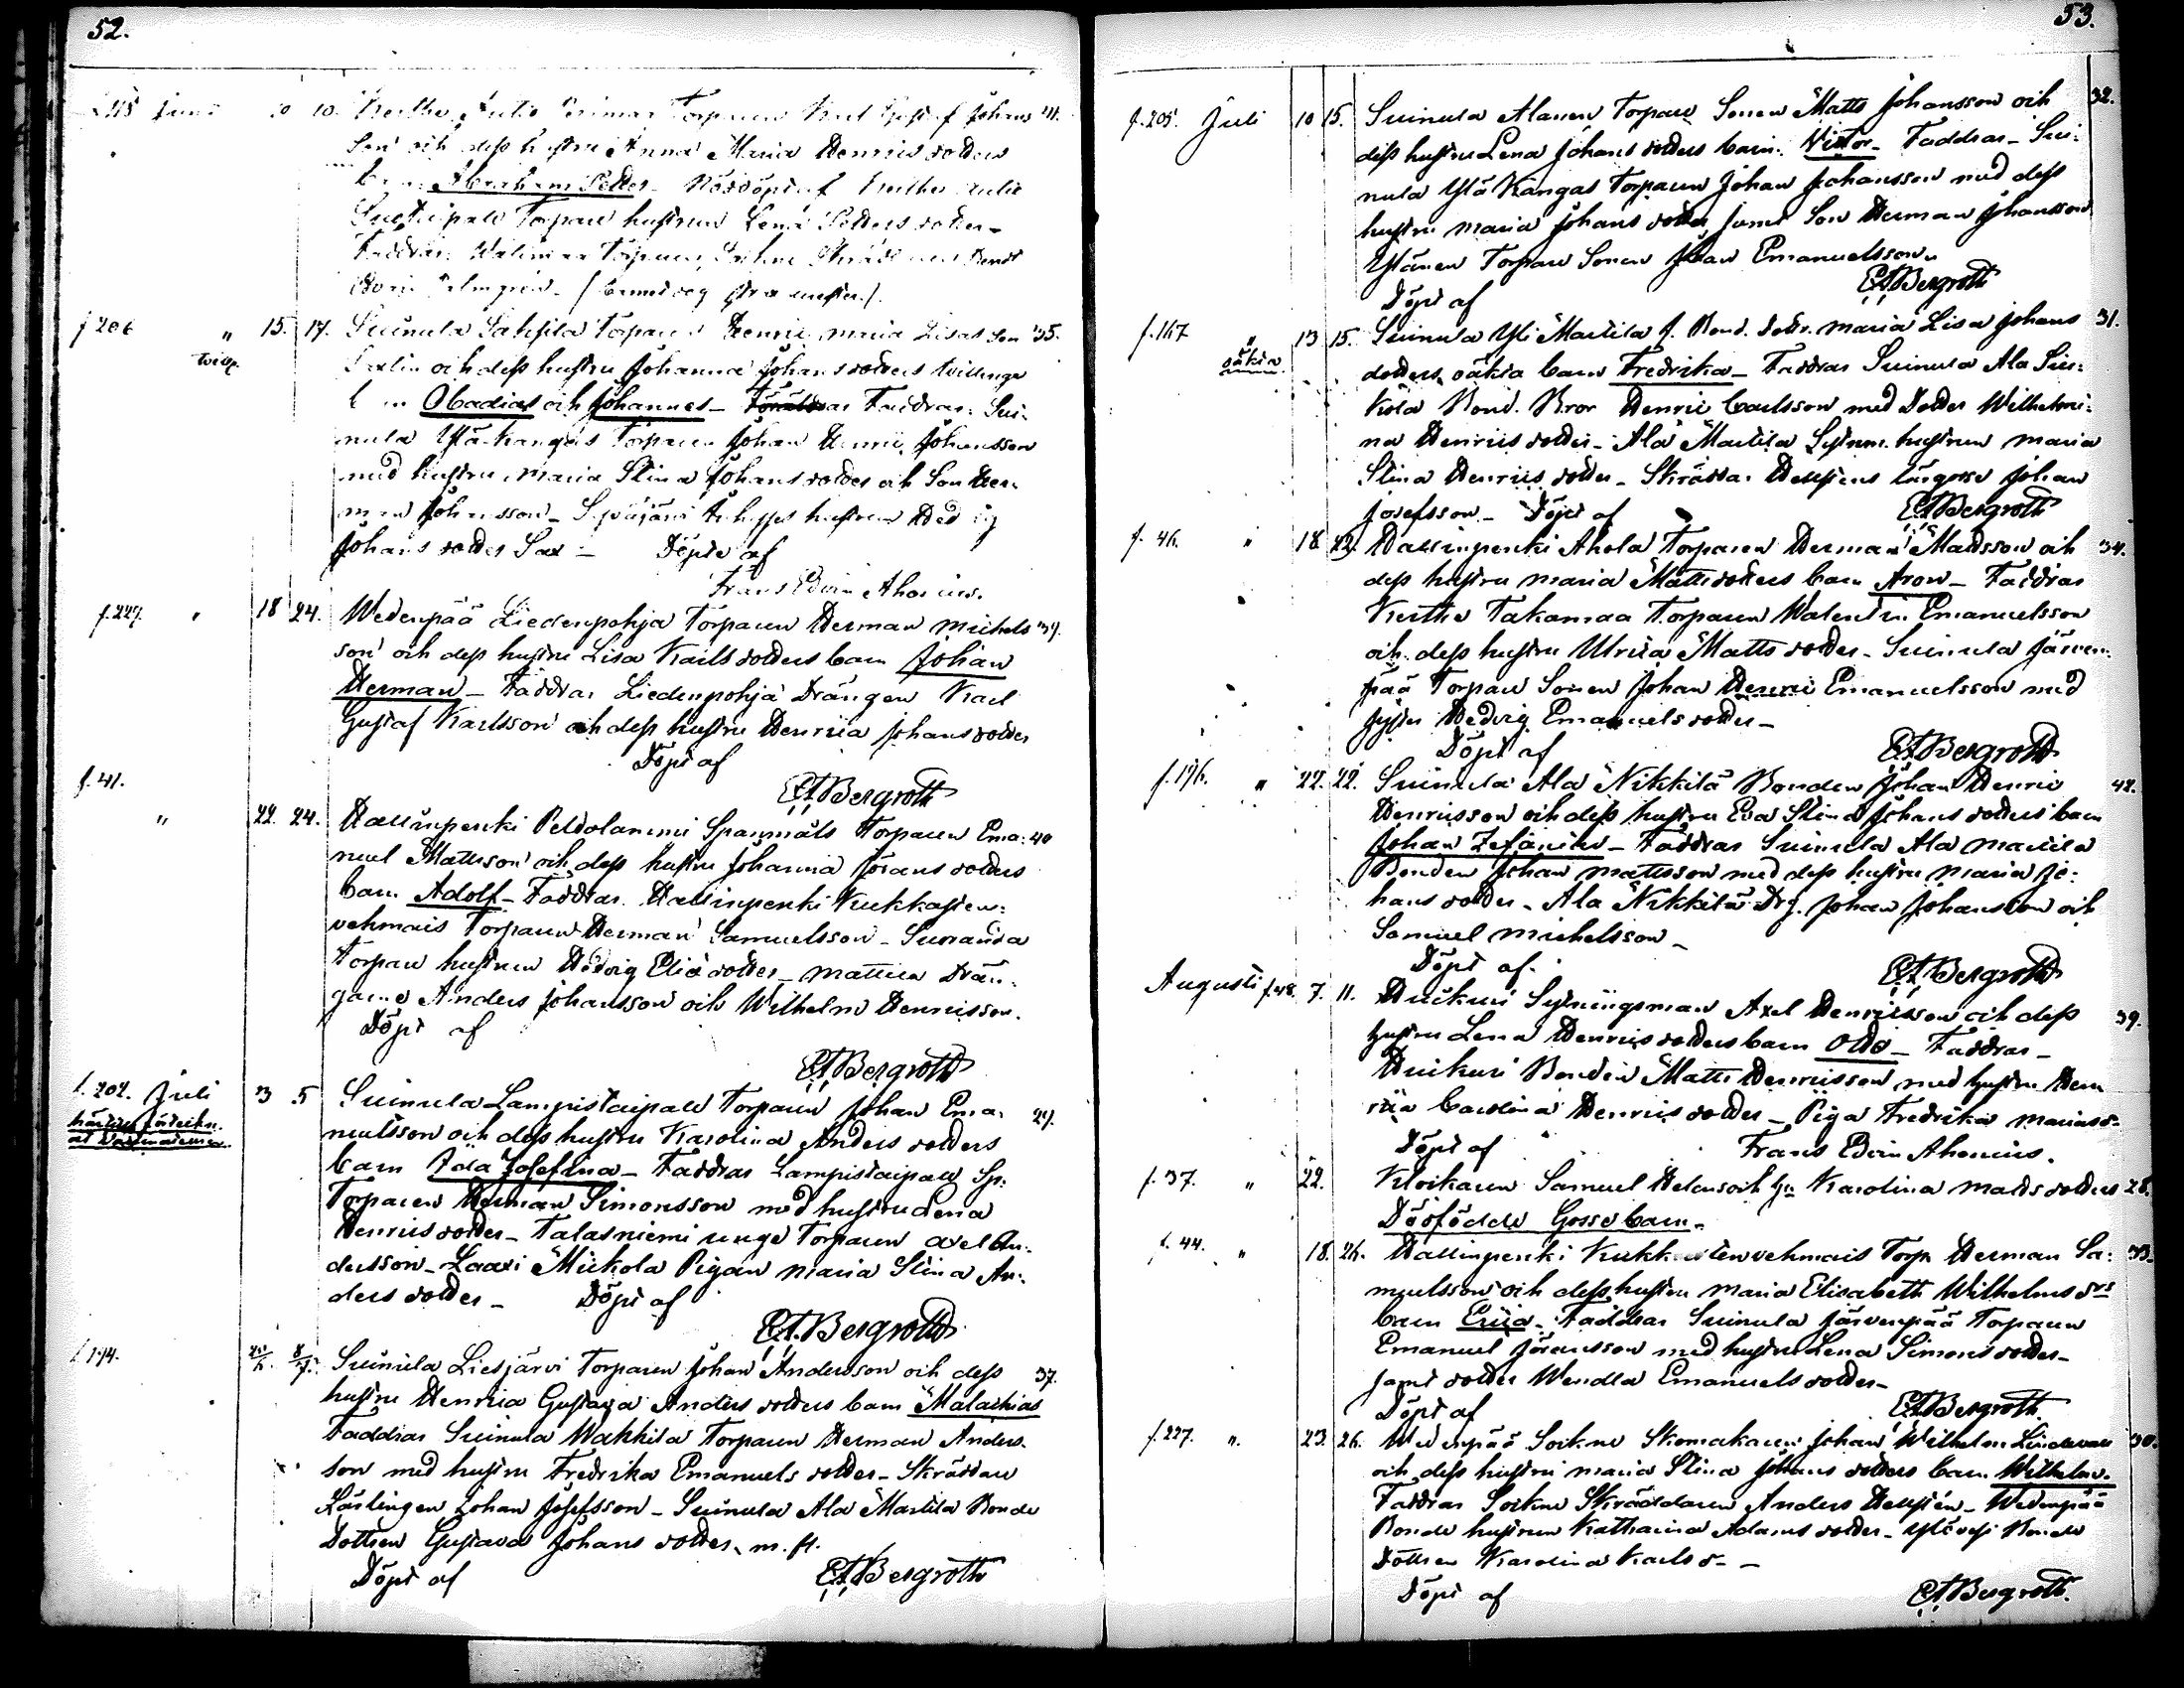 52.
Juni 10 10. Torparen Karl Gustaf Johans
son och dess hustru Anna Maria Henriksdotters
barn Abraham Petter - Nöddöpt af
Torpare hustrun Lena Petters dotter -
Faddrar Torparen
f 206 " 15. 17. Suinula Torparen Henric Maria Lisas Son 35.
Tvill.
och dess hustru Johanna Johansdotters tvillinge
barn Obadias och Johannes - Faddrar: Sui-
nula Ylä-Kangas Torparen Johan Henric Johansson
med hustru Maria Stina Johansdotter och Son Her-
man Johansson - hustrun Hedvig
Johans dotter Sax - Döpte af
Frans Edvin Ahonius.
f. 227. " 18 24. Wedenpää Liedenpohja Torparen Herman Michels
son och dess hustru Lisa Karlsdotters barn Johan
Herman - Faddrar Liedenpohja Drängen Karl
Gustaf Karlsson och dess hustru Henrica Johansdotter
Döpt af
E.A. Bergroth
f. 41.
" 22. 24. Hallinpenki Peldolammi Spanmåls Torparen Ema- 40
nuel Mattsson och dess hustru Johanna Jörans dotters
barn Adolf - Faddrar. Hallinpenki Kukkasten-
vehmais Torparen Herman Samuelsson -
Torpare hustrun Hedvig Eliæ dotter - Mattila Drän-
garne Anders Johansson och Wilhelm Henricsson.
Döpt af
E.A. Bergroth
f. 202. Juli 3 5 Suinula Lampistaipale Torparen Johan Ema- 27.
nuelsson och dess hustru Karolina Anders dotters
barn Ida Josefina - Faddrar Lampistaipale Sp.
Torparen Herman Simonsson med hustru Lena
Henricsdotter - Talasniemi unge Torparen Axel An-
dersson - Laaxi Mickola Pigan Maria Stina An-
ders dotter - Döpt af
E.A. Bergroth
f 194. Suinula Liesjärvi Torparen Johan Andersson och dess 37.
hustru Henrica Gustava Anders dotters barn Malachias
Faddrar Suinula Wahkila Torparen Herman Anders-
son med hustru Fredrika Emanuels dotter - Skräddare
Lärlingen Johan Josefsson - Suinula Ala Marttila Bonde
Dottren Gustava Johans dotter, m. fl.
Döpt af E.A. Bergroth
53.
f. 205. Juli 10 15. Suinula Alanen Torpare Sonen Matts Johansson och 32.
dess hustru Lena Johansdotters barn. Victor - Faddrar - Sui-
nula Ylä Kangas Torparen Johan Johansson med dess
hustru Maria Johansdotter samt Son Herman Johansson
Ylänen Torpare Sonen Johan Emanuelsson.
Döpt af E.A. Bergroth
f. 167 " 13 15. Suinula Yli Marttila f. Bond. dotr. Maria Lisa Johans 31.
oäkta
dotters, oäkta barn Fredrika - Faddrar Suinula Ala Sir-
kola Bond. Bror Henric Carlsson med Dotter Wilhelmi-
na Henricsdotter - Ala Marttila Sytnm. hustrun Maria
Stina Henrics dotter - Skräddar lärgosse Johan
Josefsson - Döpt af E.A. Bergroth
f. 46. " 18 22. Hallinpenki Ahola Torparen Herman Mattsson och 34.
dess hustru Maria Matts dotters barn Aron - Faddrar
Kerttu Takamaa Torparen Walentin Emanuelsson
och dess hustru Ulrica Matts dotter - Suinula Järven-
pää Torpare Sonen Johan Henric Emanuelsson med
syster Hedvig Emanuels dotter -
Döpt af E.A. Bergroth
f. 176. " 22. 22. Suinula Ala Nikkilä Bonden Johan Henric 42.
Henricsson och dess hustru Eva Stina Johans dotters barn
Johan Zefanias - Faddrar Suinula Ala Marttila
Bonden Johan Mattsson med dess hustru Maria Jo-
hans dotter - Ala Nikkilä Drg. Johan Johansson och
Samuel Michelsson -
Döpt af. E.A. Bergroth
Augusti f. 48. 7. 11. Huikuri Sytningsman Axel Henricsson och dess 39.
hustru Lena Henricsdotters barn Otto - Faddrar -
Huikuri Bonden Matts Henricsson med hustru Hen
rica Carolina Henrics dotter - Piga Fredrika Mariasd.
Döpt af Frans Edvin Ahonius.
f. 37. " 22. Klockaren Samuel Helen och hu Karolina Matts dotters 28.
Dödfödde Gosse barn.
f. 44. " 18. 26. Hallinpenki Kukkastenvehmais Torp. Herman Sa- 33.
muelsson och dess hustru Maria Elisabeth Wilhelms drs
barn Erica - Faddrar Suinula Järvenpää Torparen
Emanuel Jöransson med hustru Lena Simons dotter -
samt dotter Wendla Emanuels dotter -
Döpt af E.A. Bergroth.
f. 227. " 23. 26. Wedenpää Soikne Skomakaren Johan Wilhelm Lindevall 30.
och dess hustru Maria Stina Johans dotters barn. Wilhelm.
Faddrar Soikne Skräddaren Anders - Wedenpää
Bonde hustrun Katharina Adams dotter - Bonde
Dottren Karolina Karls d. -
Döpt af E.A. Bergroth.